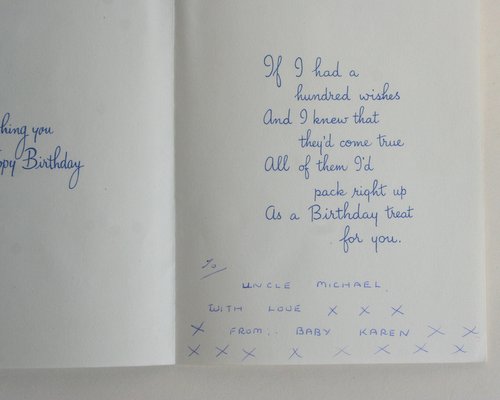 hing you
ppy Birthday
If I had a
hundred wishes
And I knew that
they'd come true
All of them I'd
pack right up
As a Birthday treat
for you.
To
UNCLE MICHAEL.
WITH LOVE X X X
X FROM.. BABY KAREN X X
X X X X X X X X